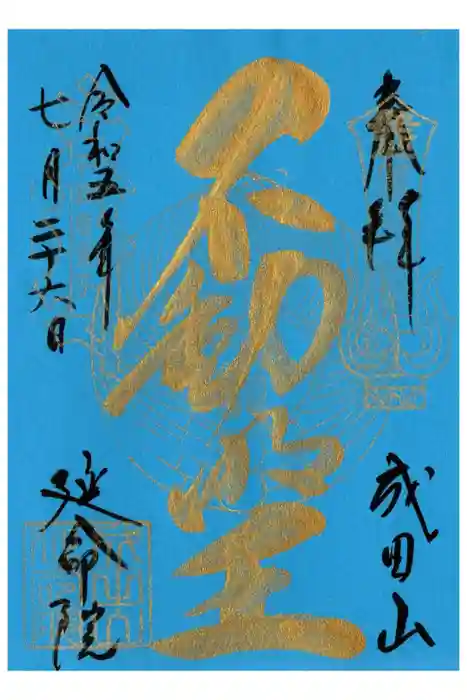 奉拝
成田山
不動明王
令和五年
七月二十六日
延命院